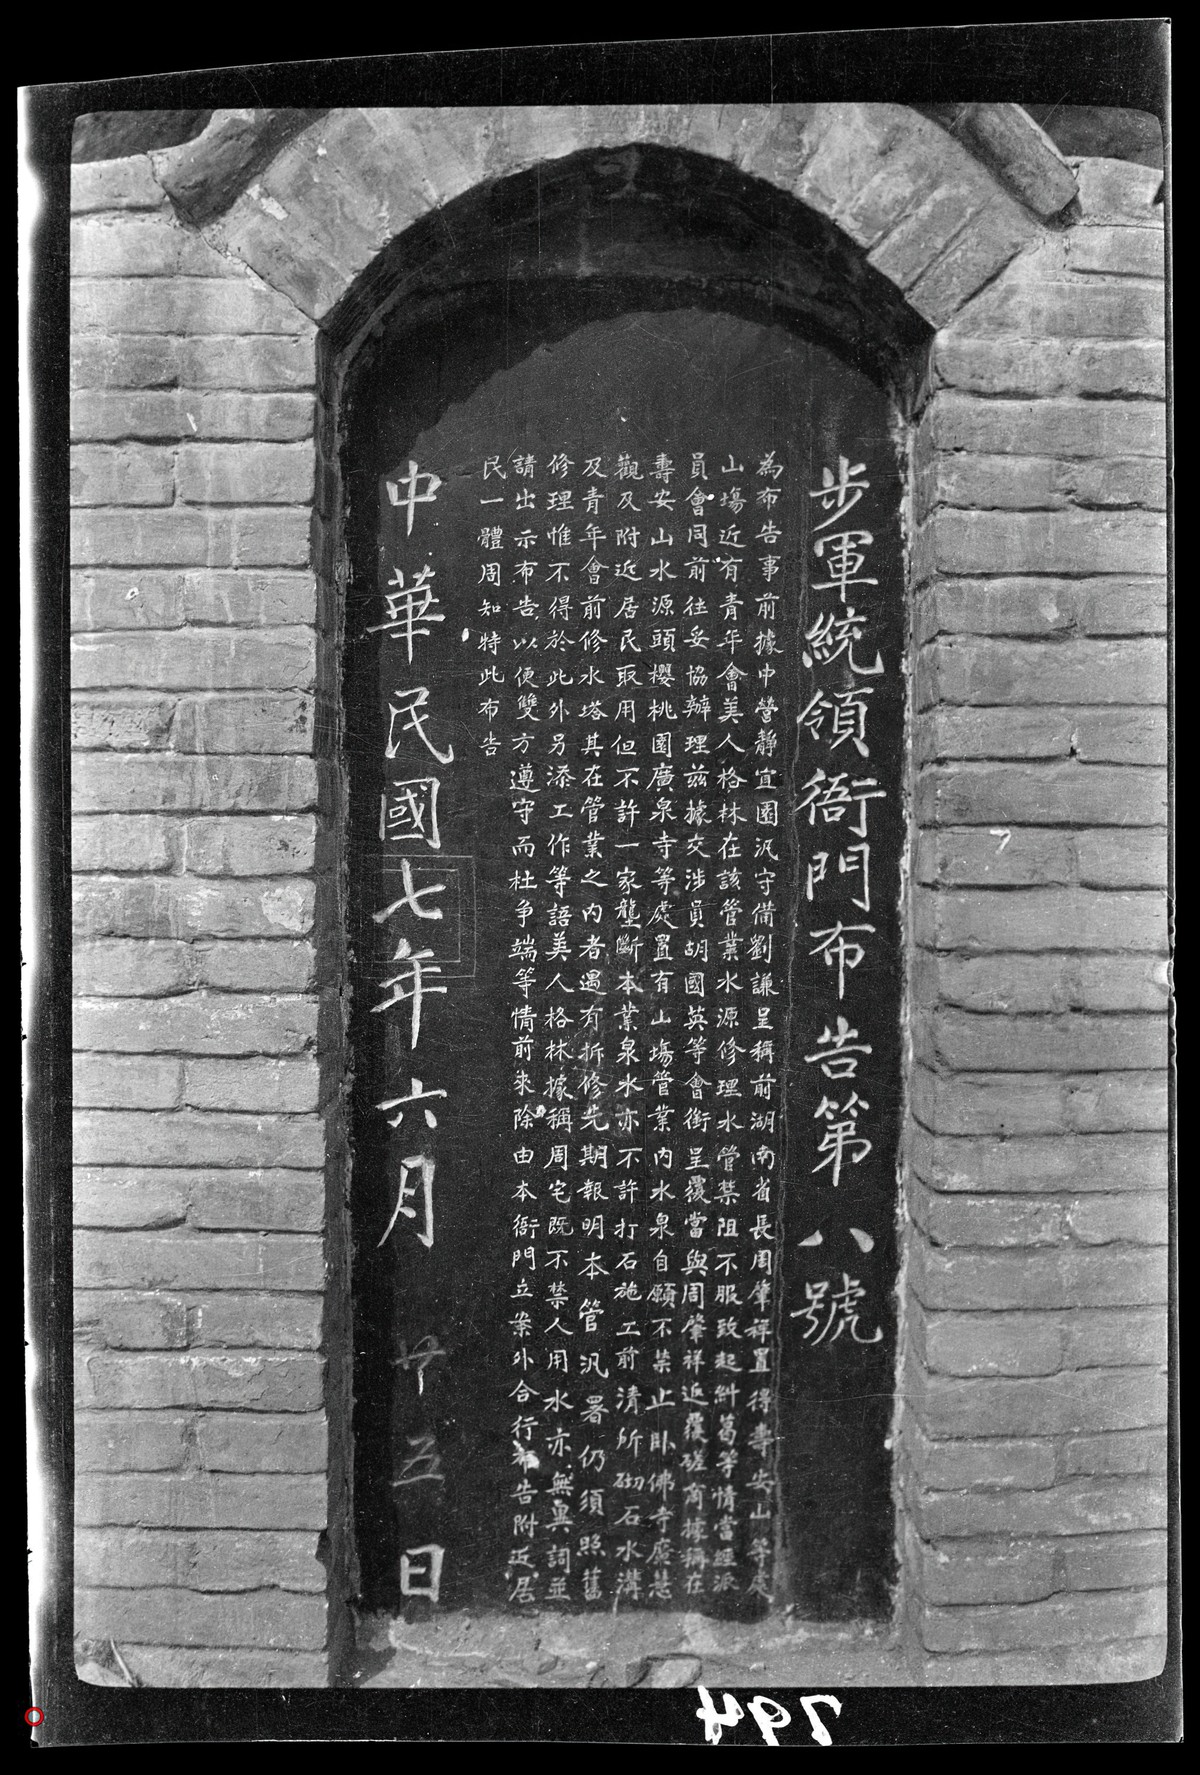 步軍統領衙門布告第八號
為布告事前據中營靜宜園汛守備劉謙呈稱前湖南省長周肇祥置得壽安山等處
山場近有青年會美人格林在該管業水源修理水管禁阻不服致起糾葛等情當經派
員會同前往妥協辦理茲據交涉員胡國英等會銜呈覆當與周肇祥返覆磋商據稱在
壽安山水源頭櫻桃園廣泉寺等處置有山場管業內水泉自願不禁止卧佛寺廣慧
觀及附近居民取用但不許一家壟斷本業泉水亦不許打石施工前清所砌石水溝
及青年會前修水塔其在管業之內者遇有拆修先期報明本管汛署仍須照舊
修理惟不得於此外另添工作等語美人格林據稱周宅既不禁人用水亦無異詞並
請出示布告以便雙方遵守而杜爭端等情前來除由本衙門立案外合行布告附近居
民一體周知特此布告
中華民國七年六月廿五日
794